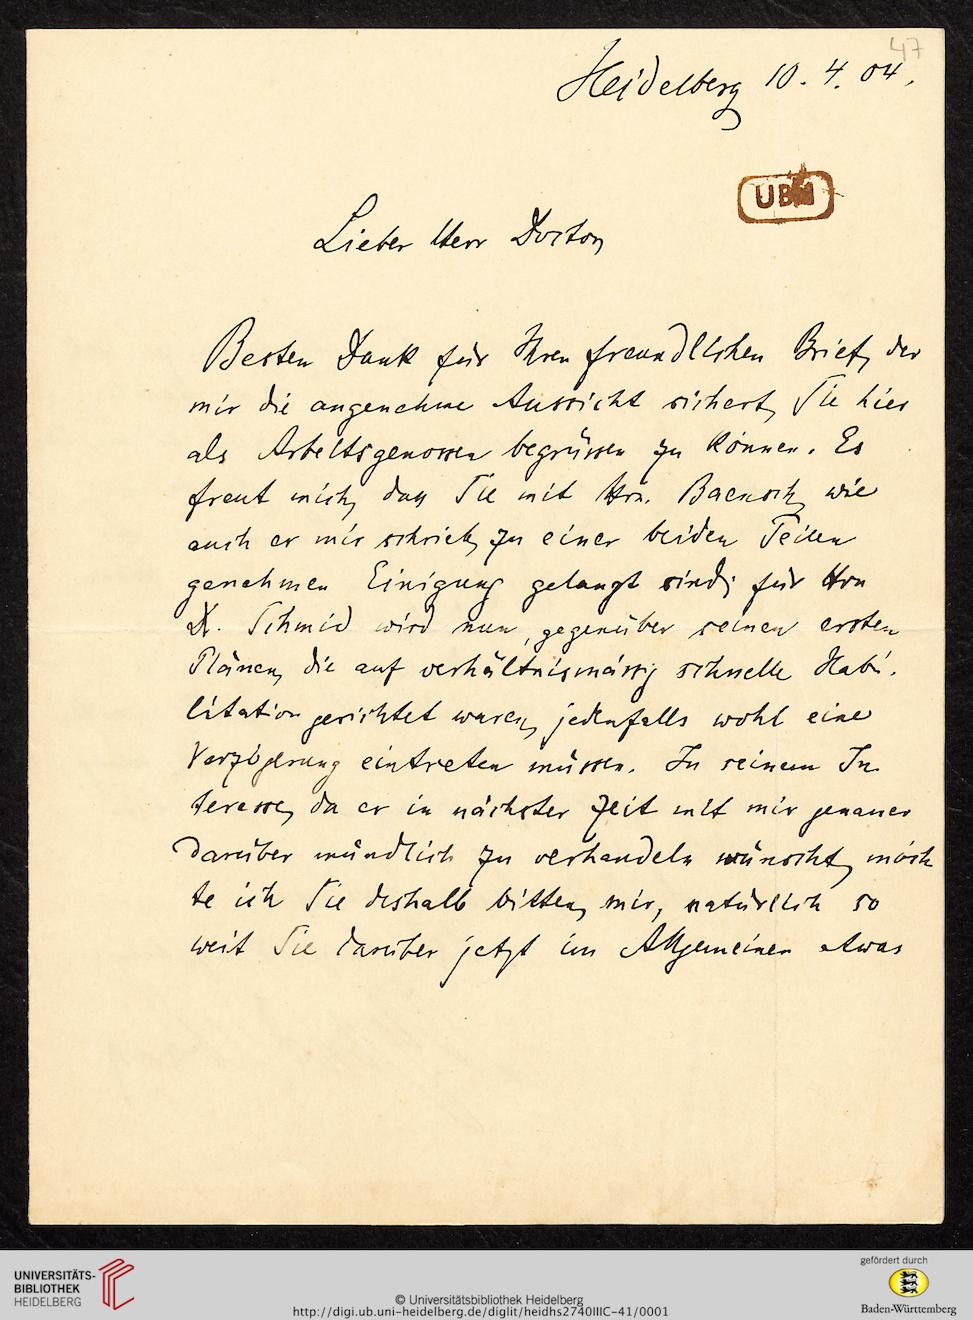 47
Heidelberg 10. 4. 04.
UBH
Lieber Herr Doctor,
Besten Dank für Ihren freundlichen Brief, der
mir die angenehme Aussicht sichert, Sie hier
als Arbeitsgenossen begrüssen zu können. Es
freut mich, dass Sie mit Hrn. wie
auch er mir schrieb, zu einer beiden Teilen
genehmen Einigung gelangt sind; für Hrn
Dr. Schmid wird nun, gegenüber seinen ersten
Plänen, die auf verhältnismässig schnelle Habi-
litation gerichtet waren, jedenfalls wohl eine
Verzögerung eintreten müssen. In seinem In-
teresse, da er in nächster Zeit mit mir genauer
darüber mündlich zu verhandeln wünscht, möch
te ich Sie deshalb bitten, mir, natürlich so
weit Sie darüber jetzt im Allgemeinen etwas
UNIVERSITÄTS-
BIBLIOTHEK
HEIDELBERG
© Universitätsbibliothek Heidelberg
http://digi.ub.uni-heidelberg.de/diglit/heidhs2740IIIC-41/0001
gefördert durch
Baden-Württemberg